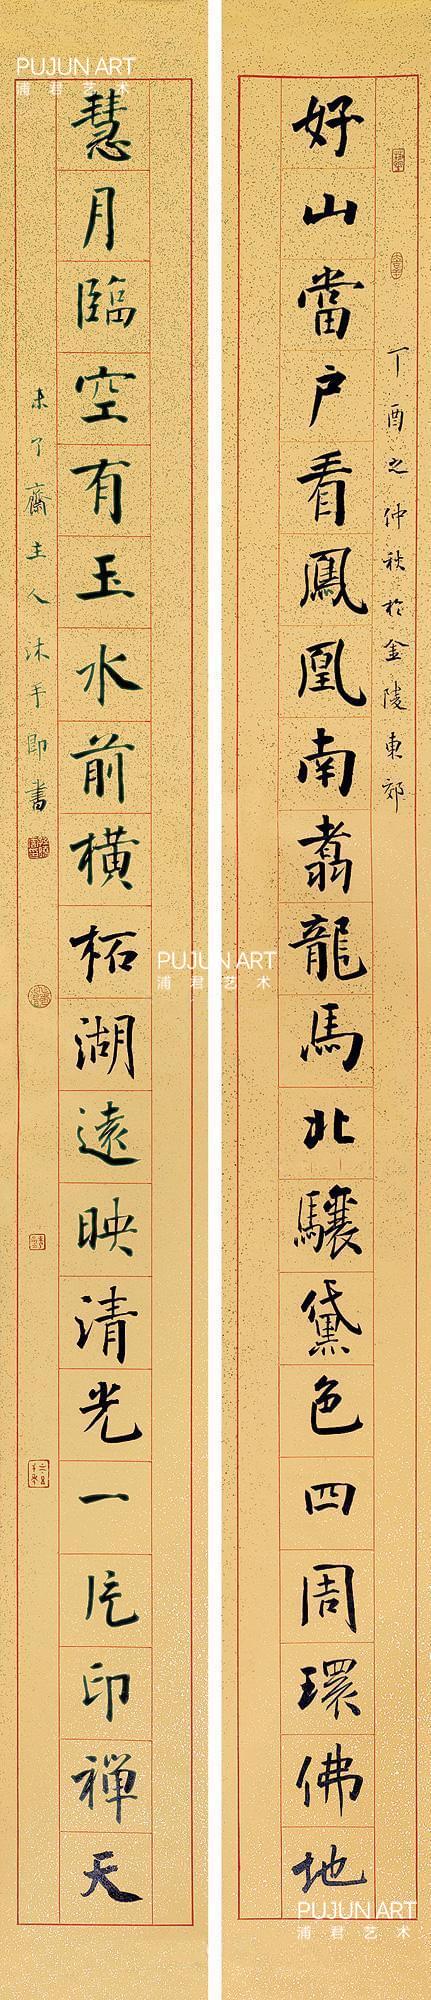 丁酉之仲秋於金陵東郊
好山當户看鳳凰南翥龍馬北驤黛色四周環佛地
慧月臨空有玉水前横柘湖遠映清光一片印禅天
未了齋主人沐手即書
PUJUN ART
浦君艺术
PUJUN ART
浦君艺术
PUJUN ART
浦君艺术